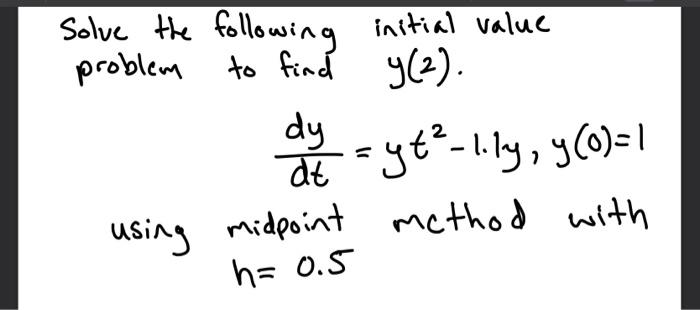 Solve the following initial value
problem to find y(2).
dy/dt = yt² - 1.1y, y(0)=1
using midpoint method with
h= 0.5